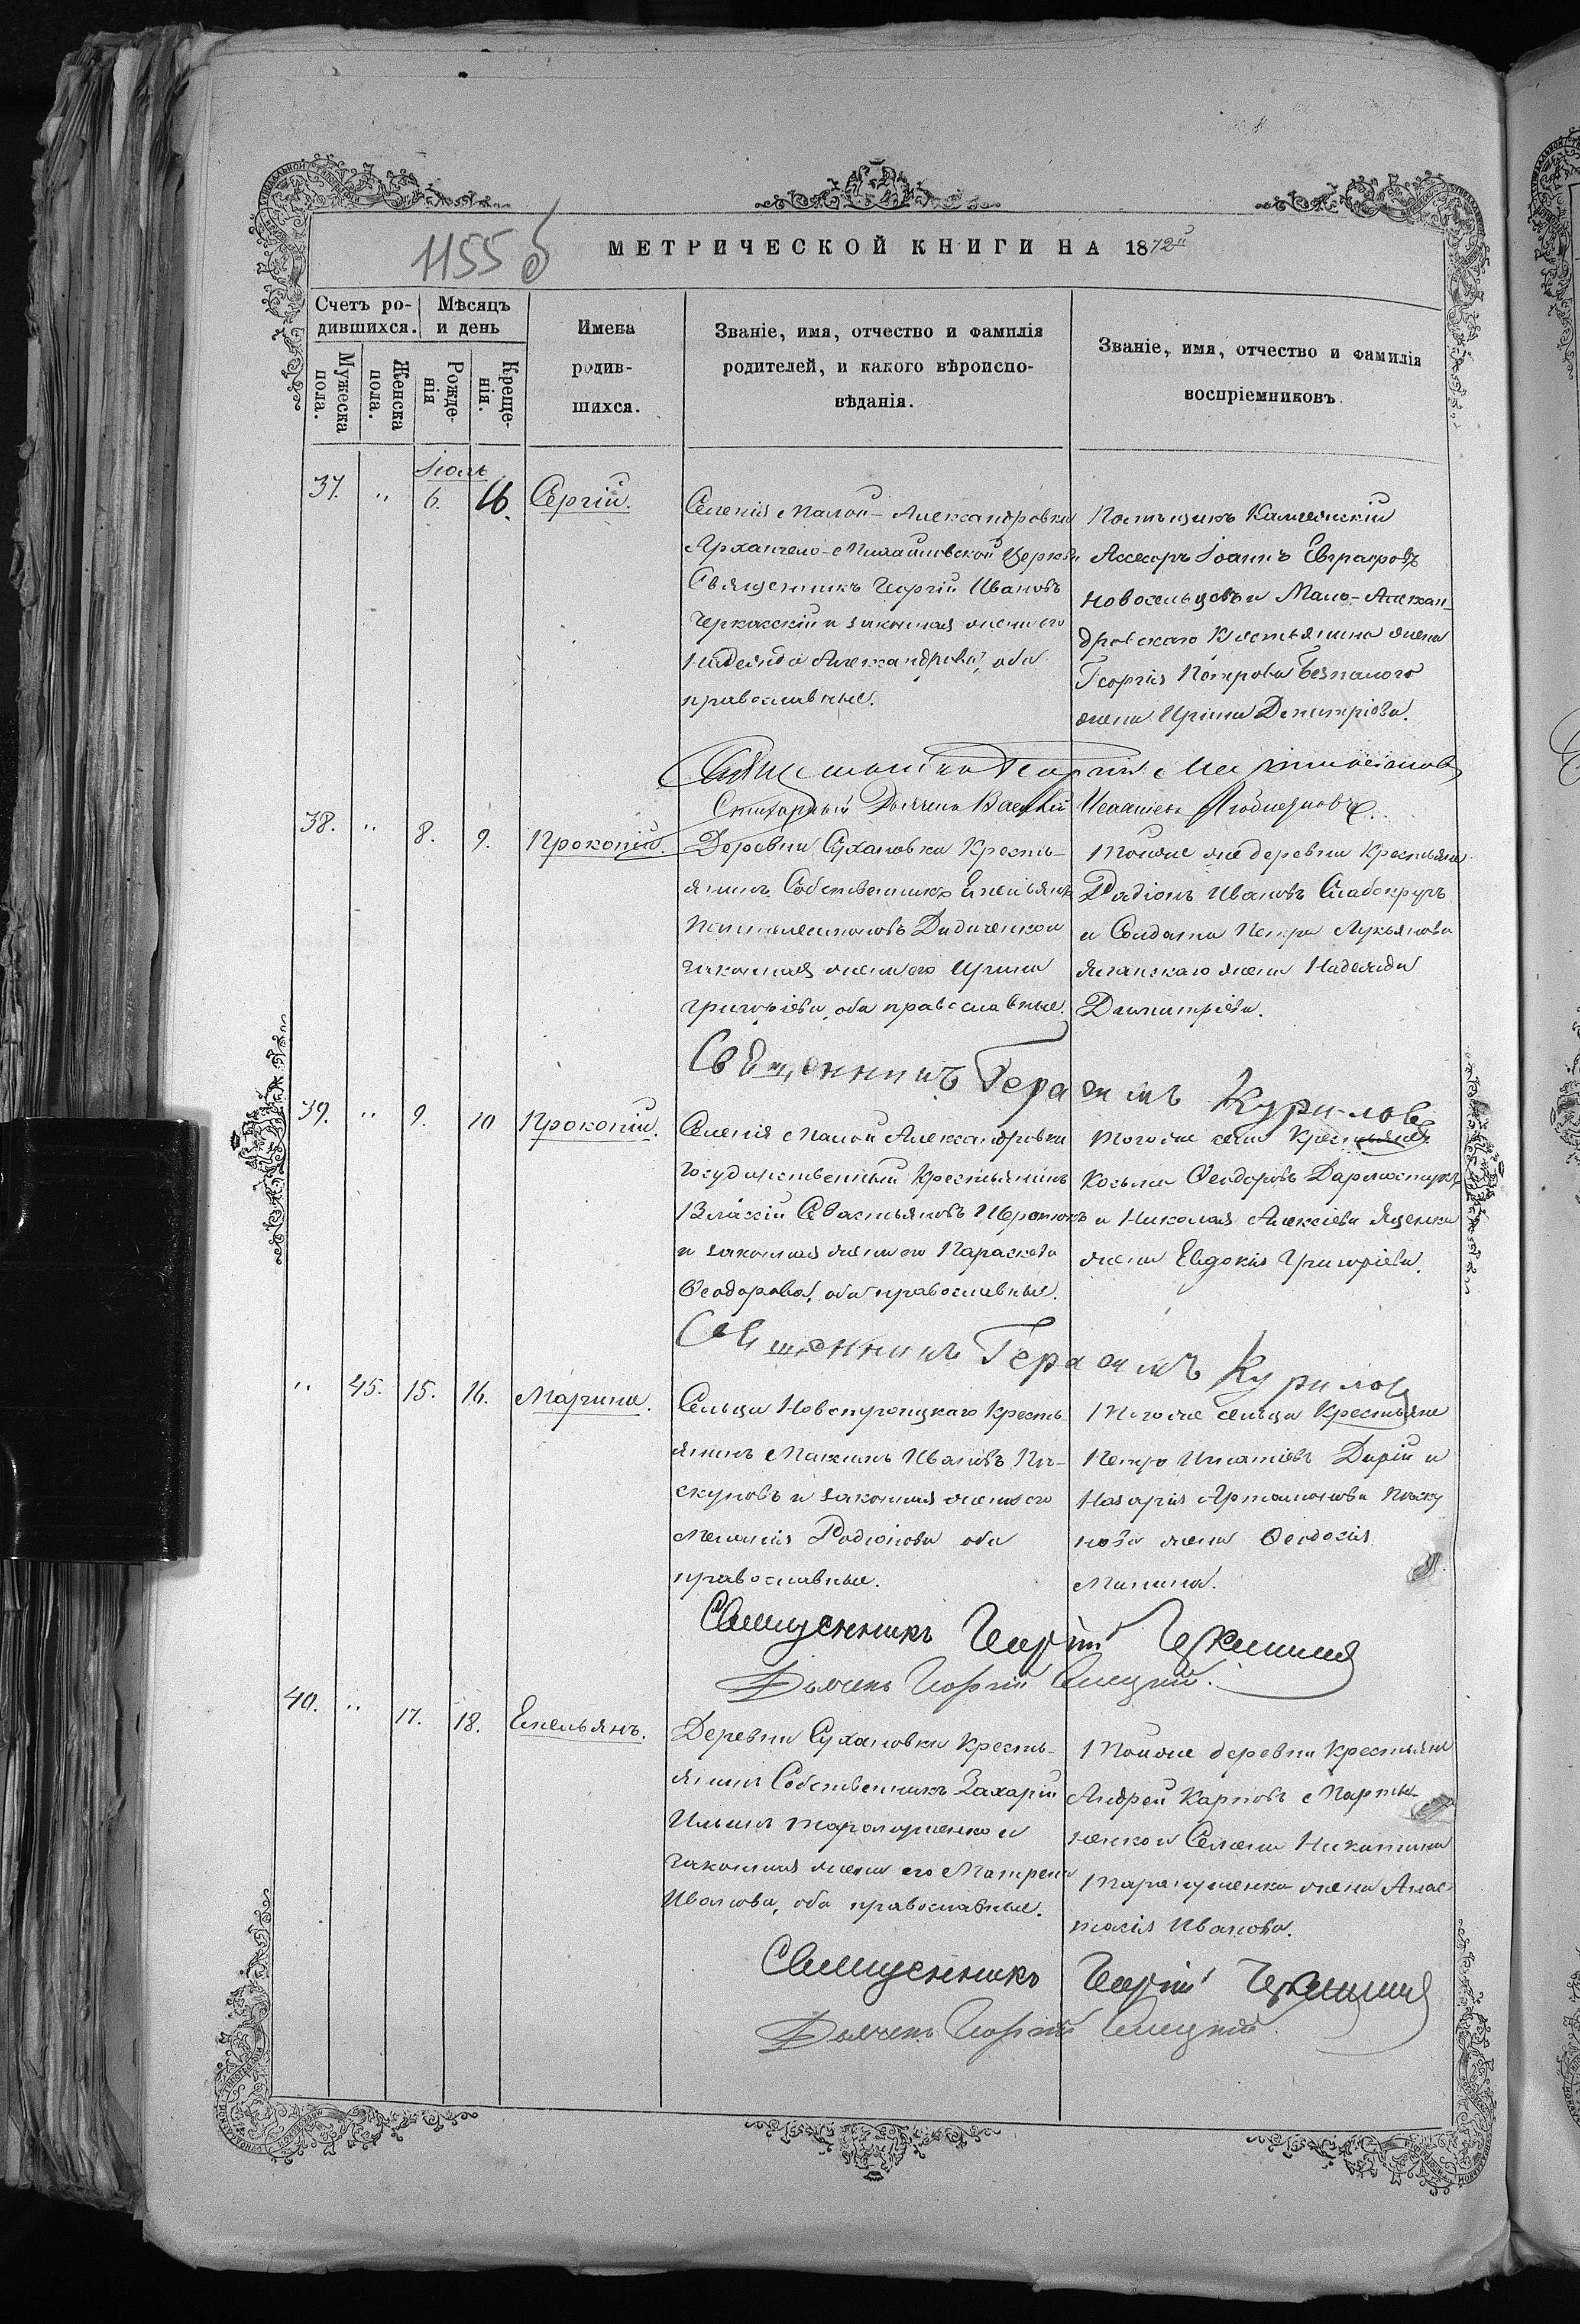 1155 б
МЕТРИЧЕСКОЙ КНИГИ НА 1872й
Счетъ ро-
дившихся.
Мѣсяцъ
и день
Мужеска
пола.
Женска
пола.
Рожде-
нія
Креще-
нія.
Имена
родив-
шихся.
Званіе, имя, отчество и фамилія
родителей, и какого вѣроиспо-
вѣданія.
Званіе, имя, отчество и фамилія
воспріемниковъ
Іюль
37. " 6. 16. Сергій.
Селенія Малой-Александровки
Архангело-Михайловской Церкви
Священникъ Георгій Ивановъ
Черкасскій и законная жена его
Надежда Александрова, оба
православные.
Помѣщикъ
Ассесоръ Іоаннъ Евграфовъ
Новосельцовъ и Мало-Алексан-
дровскаго Крестьянина жена
Георгія Петрова Безпалого
жена Ирина Димитріева.
Священникъ Георгій
Стихарный Дьячекъ Василій
38. " 8. 9. Прокопій.
Деревни Сухановки Кресть-
янинъ Собственникъ Емельянъ
Пантелеимоновъ Дидиченко и
законная жена его Ирина
Григоріева, оба православные.
Тойже деревни Крестьяне
Радіонъ Ивановъ Слабокруръ
и Солдата Петра Лукьянова
жена Надежда
Димитріева.
Священникъ Герасимъ Куриловъ
39. " 9. 10 Прокопій.
Селенія Малой Александровки
Государственный Крестьянинъ
Власій Севастьяновъ
и законная жена его Параскева
Ѳеодорова, оба православные.
Тогоже села Крестьяне
Козьма Ѳеодоровъ Дармостукъ
и Николая Алексіева Яценка
жена Евдокія Григоріева.
Священникъ Герасимъ Куриловъ
" 45. 15. 16. Марина.
Сельца Новотроицкаго Кресть-
янинъ Максимъ Ивановъ Пи-
скуновъ и законная жена его
Меланія Родіонова оба
православные.
Тогоже сельца Крестьяне
Петръ Игнатіевъ Дирій и
Назарія Артамонова Писку
нова жена Ѳеодосія
Минина.
Священникъ Георгій Черкасскій
Дьячекъ Георгій
40. " 17. 18. Емельянъ.
Деревни Сухановки Кресть-
янинъ Собственникъ Захарій
Ильинъ и
законная жена его Матрена
Иванова, оба православные.
Тойже деревни Крестьяне
Андрей Карповъ Марты-
ненко и Семена Никитина
жена Анас
тасія Иванова.
Священникъ Георгій Черкасскій
Дьячекъ Георгій